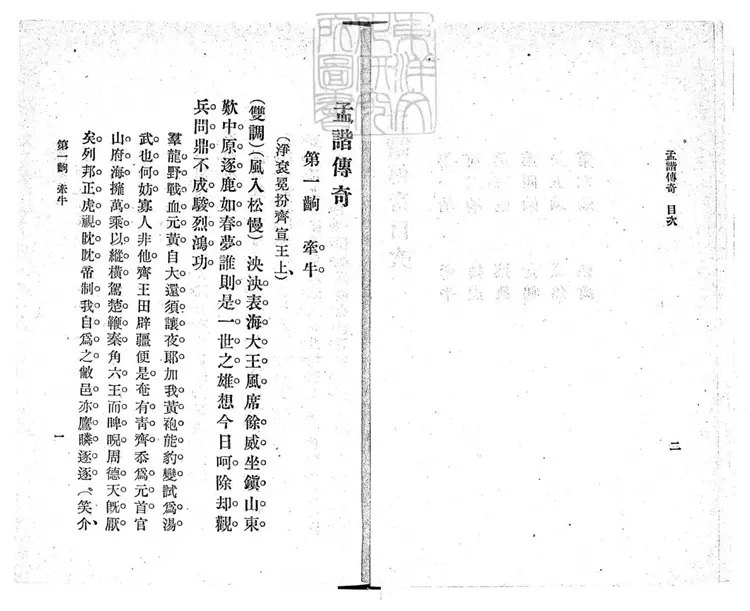 孟諧傳奇 目次
二
孟諧傳奇
第一齣 牽牛
(淨袞冕扮齊宣王上)、
(雙調)(風入松慢) 泱泱表海大王風。席餘威坐鎭山東。
歎中原逐鹿如春夢。誰則是一世之雄。想今日呵除却觀
兵問鼎。不成駿烈鴻功。
羣龍野戰血元黃。自大還須讓夜郎。加我黃袍能豹變。試爲湯
武也何妨。寡人非他。齊王田辟疆便是。奄有靑齊。忝爲元首。官
山府海。擁萬乘以縱橫。駕楚鞭秦。角六王而睥睨。周德天旣厭
矣。列邦正虎視眈眈。帝制我自爲之。敝邑亦鷹瞵逐逐。(笑介)、
第一齣 牽牛
一